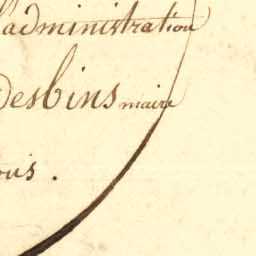 l'administration
Desbins maire
ous.